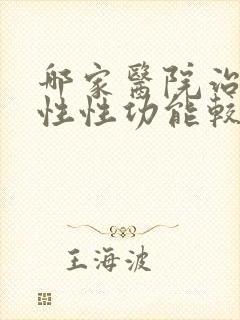 哪家醫院治
性性功能較
王海波